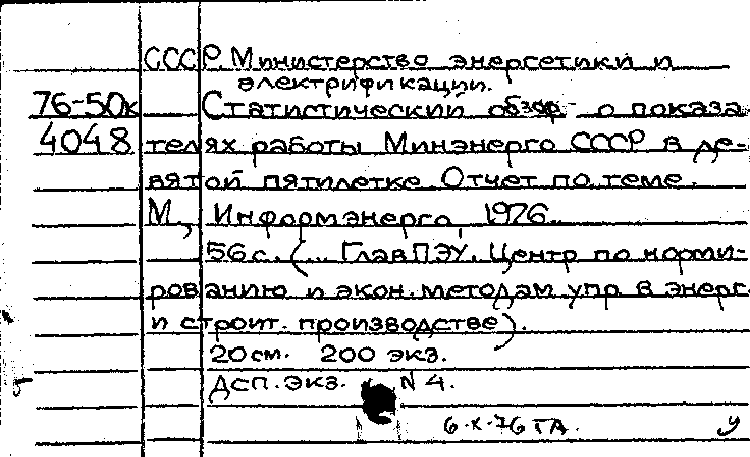 СССР. Министерство энергетики и
электрификации.
76-50к Статистический обзор о показа
4048 телях работы Минэнерго СССР в де-
вятой пятилетке. Отчет по теме.
М., Информэнерго, 1976.
56 с. (... ГлавПЭУ. Центр по норми-
рованию и экон. методам упр. в энерг.
и строит. производстве).
20 см. 200 экз.
ДСП. экз. N 4.
6-X-76 ТА. У